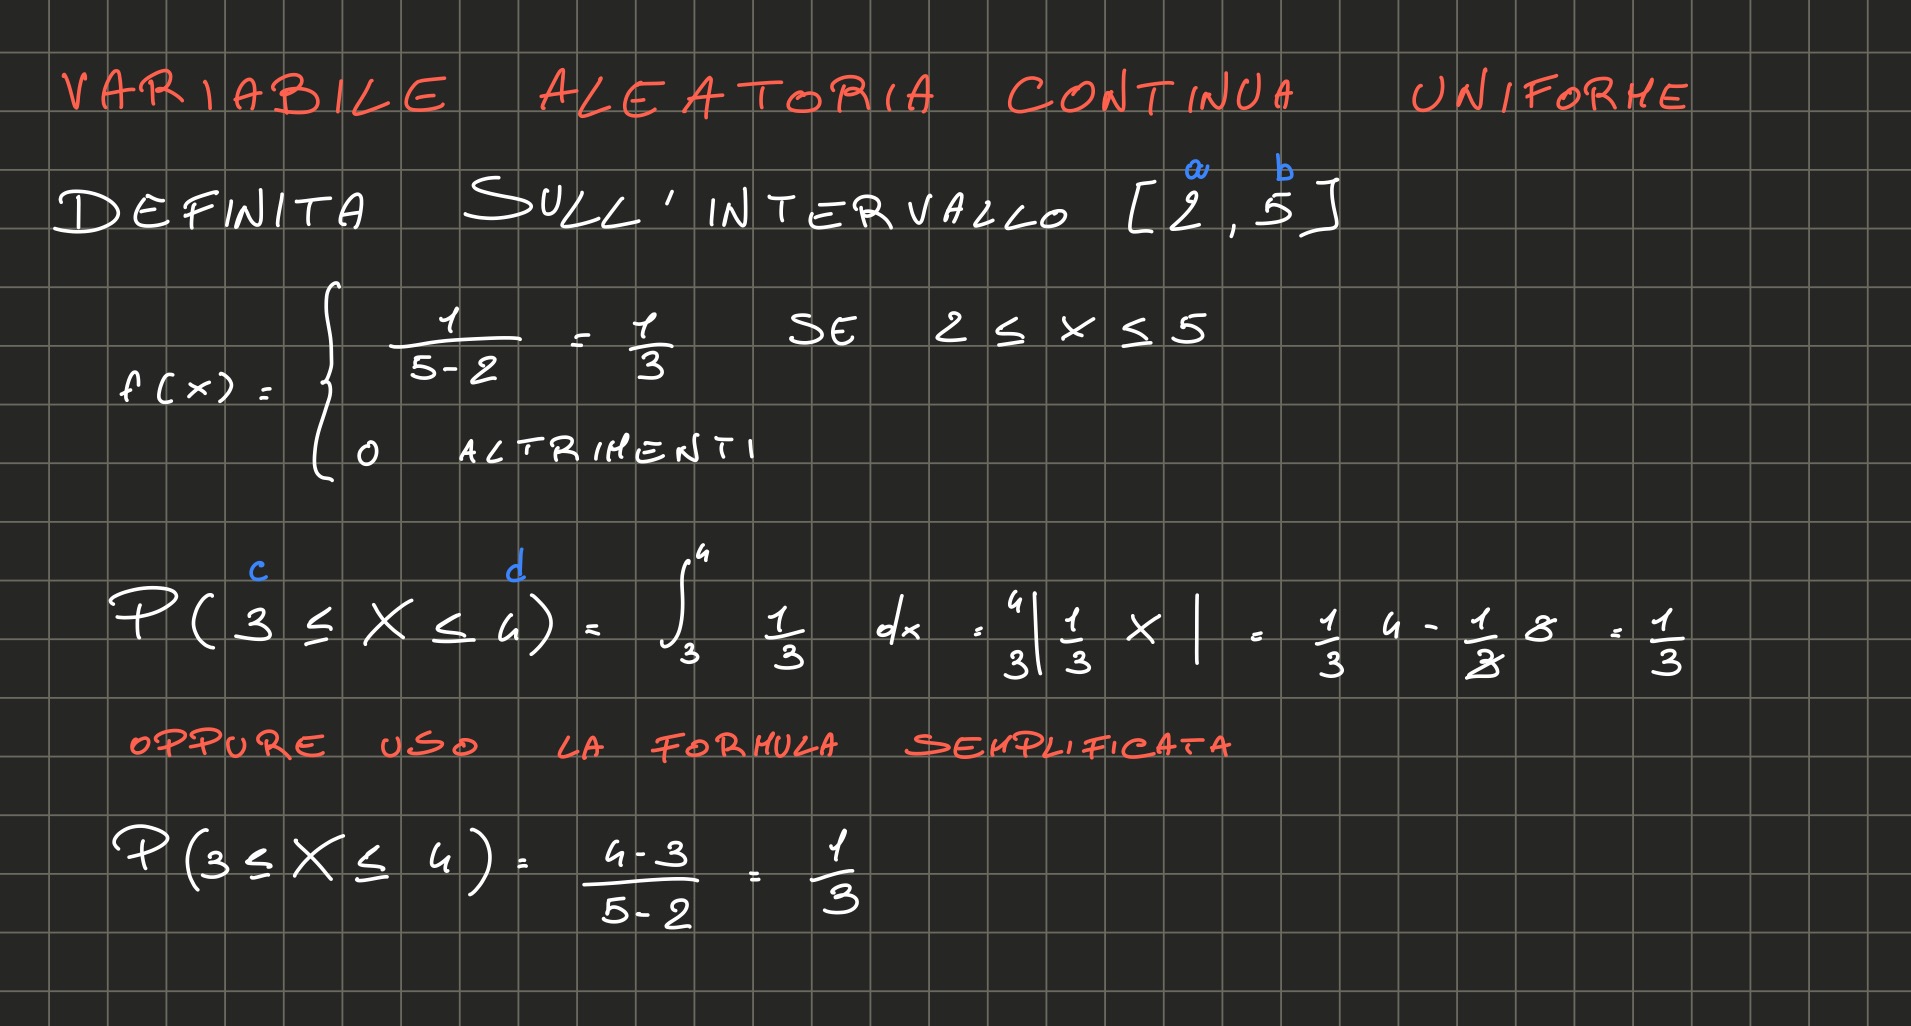 VARIABILE ALEATORIA CONTINUA UNIFORME
a b
DEFINITA SULL'INTERVALLO [2, 5]
f(x) = { 1/(5-2) = 1/3 SE 2 ≤ x ≤ 5
0 ALTRIMENTI
c d
P(3 ≤ X ≤ 4) = ∫₃⁴ 1/3 dx = ₃⁴| 1/3 x | = 1/3 4 - 1/3 3 = 1/3
OPPURE USO LA FORMULA SEMPLIFICATA
P(3 ≤ X ≤ 4) = (4-3)/(5-2) = 1/3